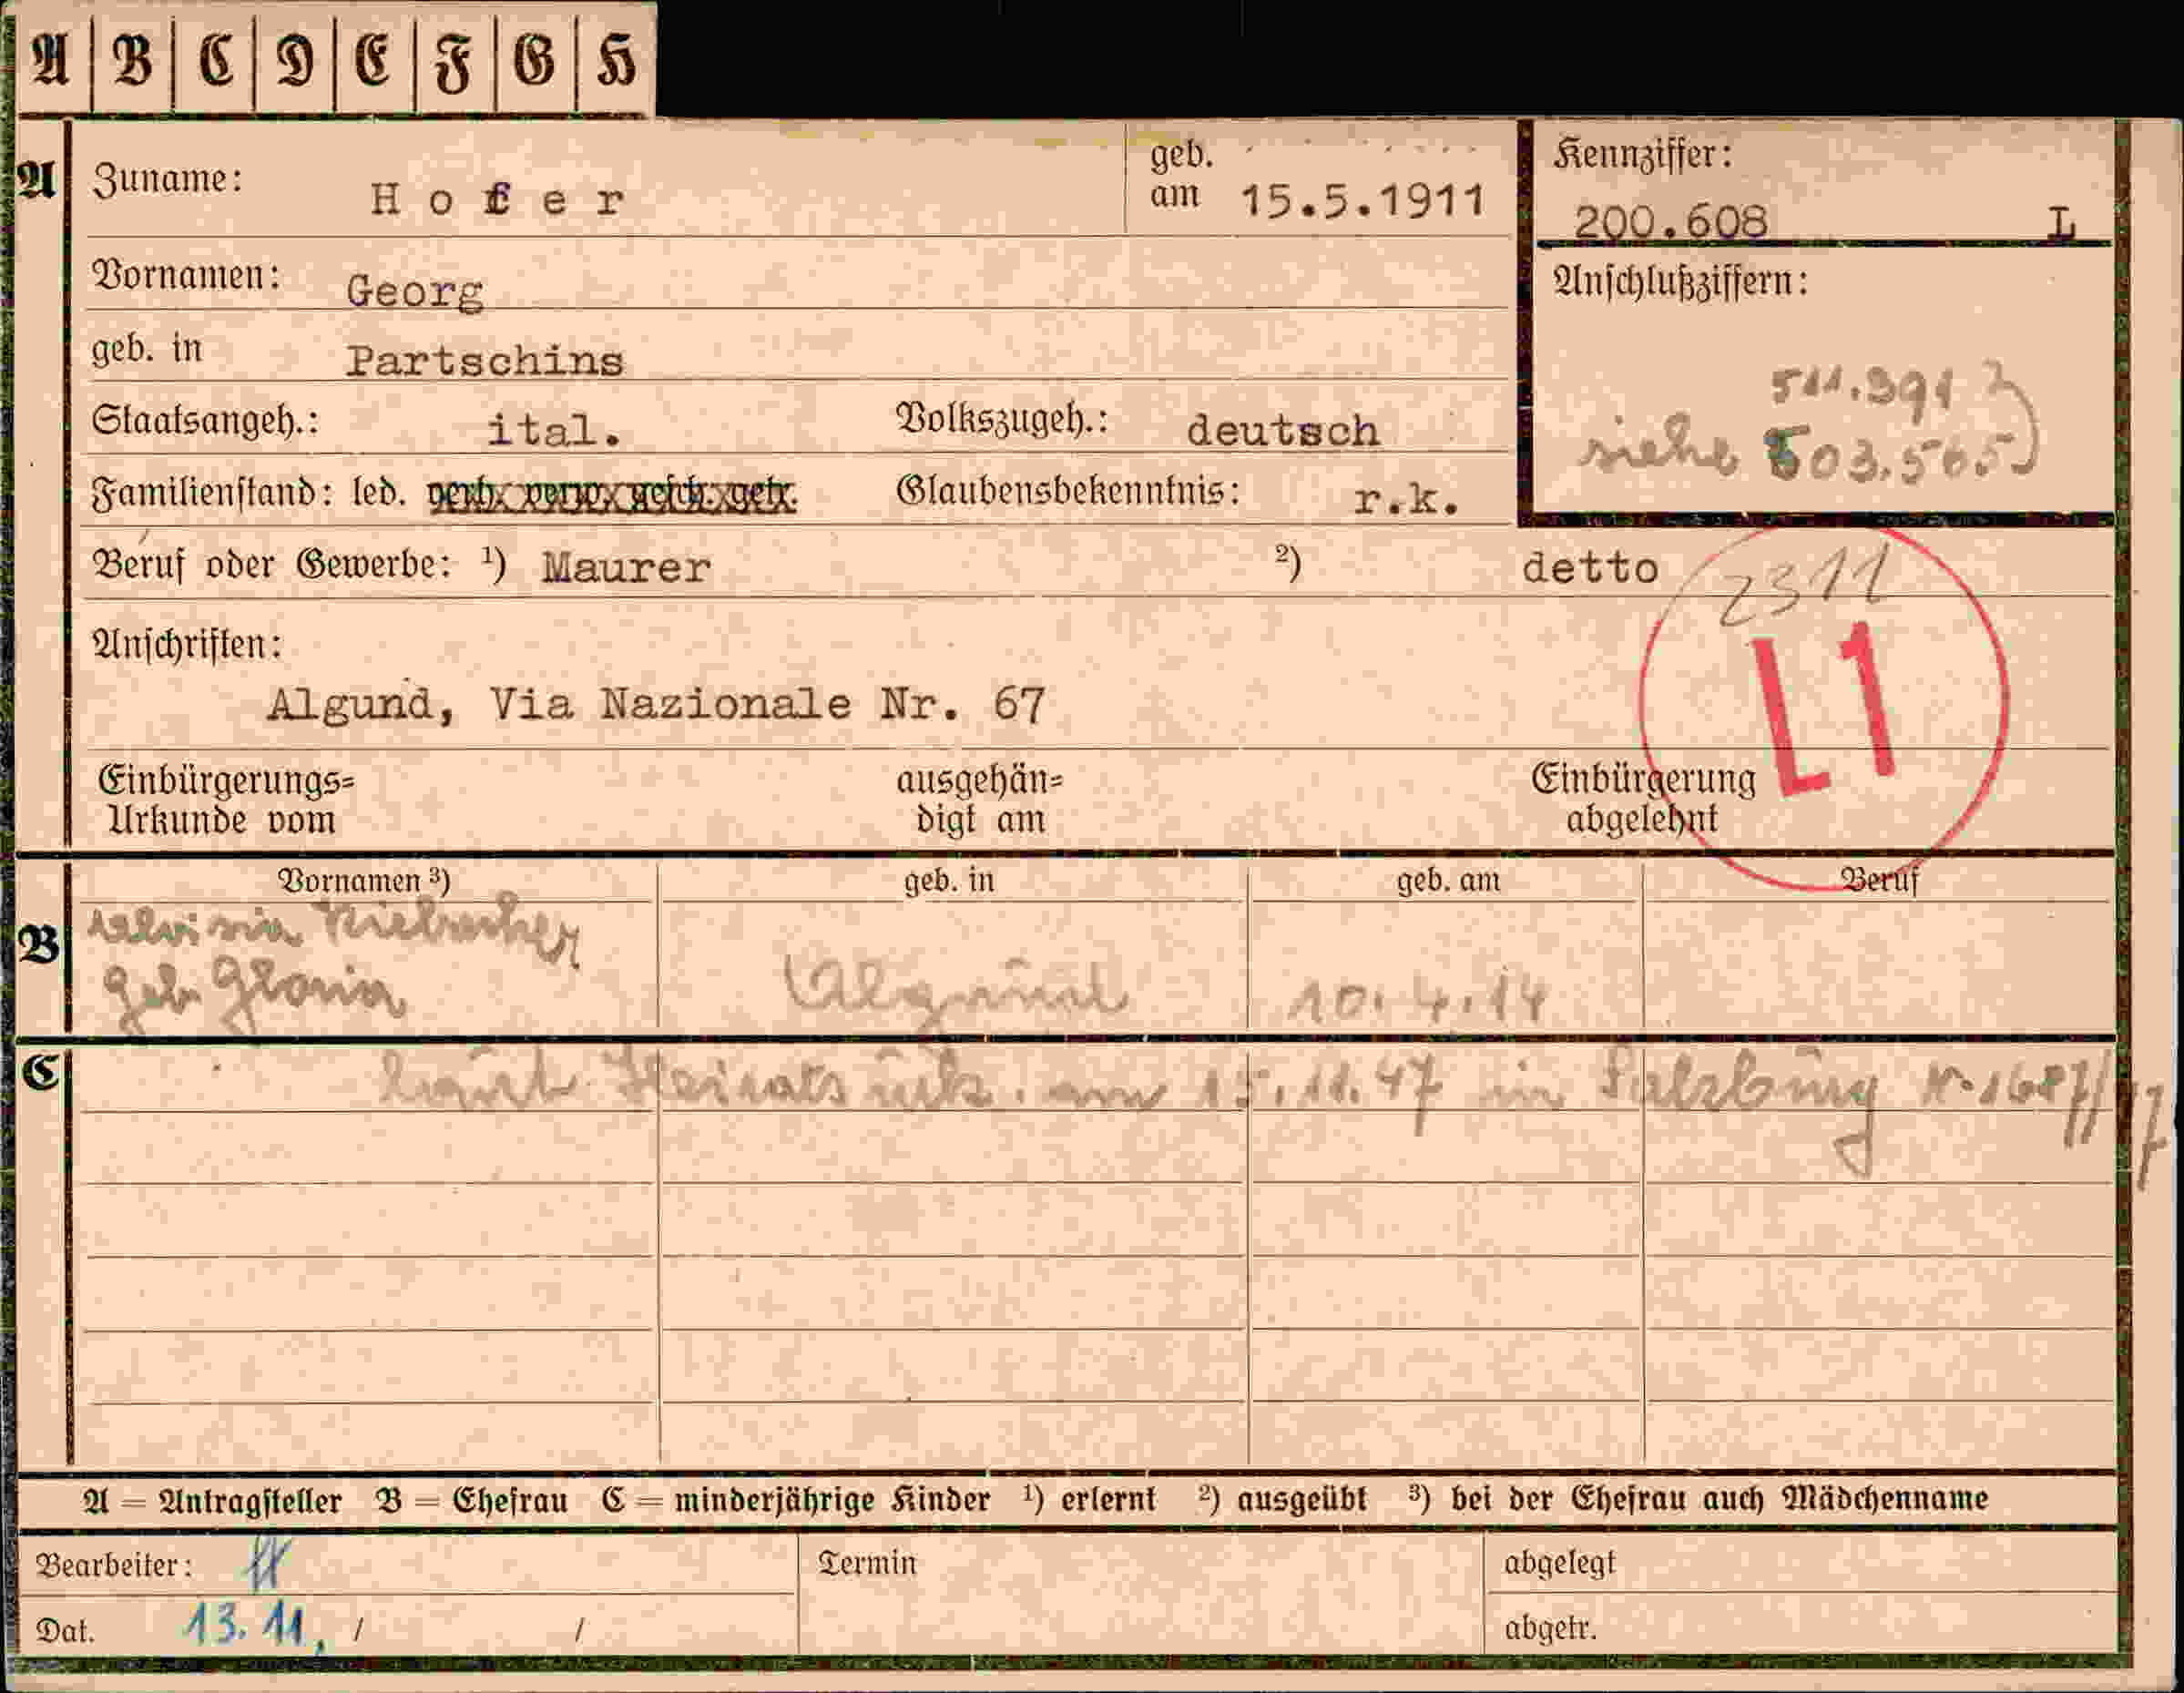 A B C D E F G H
A Zuname: Hofer geb. am 15.5.1911 Kennziffer: 200.608 L
Vornamen: Georg Anschlußziffern:
geb. in Partschins 511.391
Staatsangeh.: ital. Volkszugeh.: deutsch siehe 503.565
Familienstand: led. verh. verw. gesch. getr. Glaubensbekenntnis: r.k.
Beruf oder Gewerbe: ¹) Maurer ²) detto 2311
Anschriften: L1
Algund, Via Nazionale Nr. 67
Einbürgerungs= ausgehän= Einbürgerung
Urkunde vom digt am abgelehnt
Vornamen ³) geb. in geb. am Beruf
B
geb. Gloria Algund 10.4.14
C laut Heiratsurk. am 15.11.47 in Salzburg N. 1687/47
A = Antragsteller B = Ehefrau C = minderjährige Kinder ¹) erlernt ²) ausgeübt ³) bei der Ehefrau auch Mädchenname
Bearbeiter: Termin abgelegt
Dat. 13.11. / / abgetr.